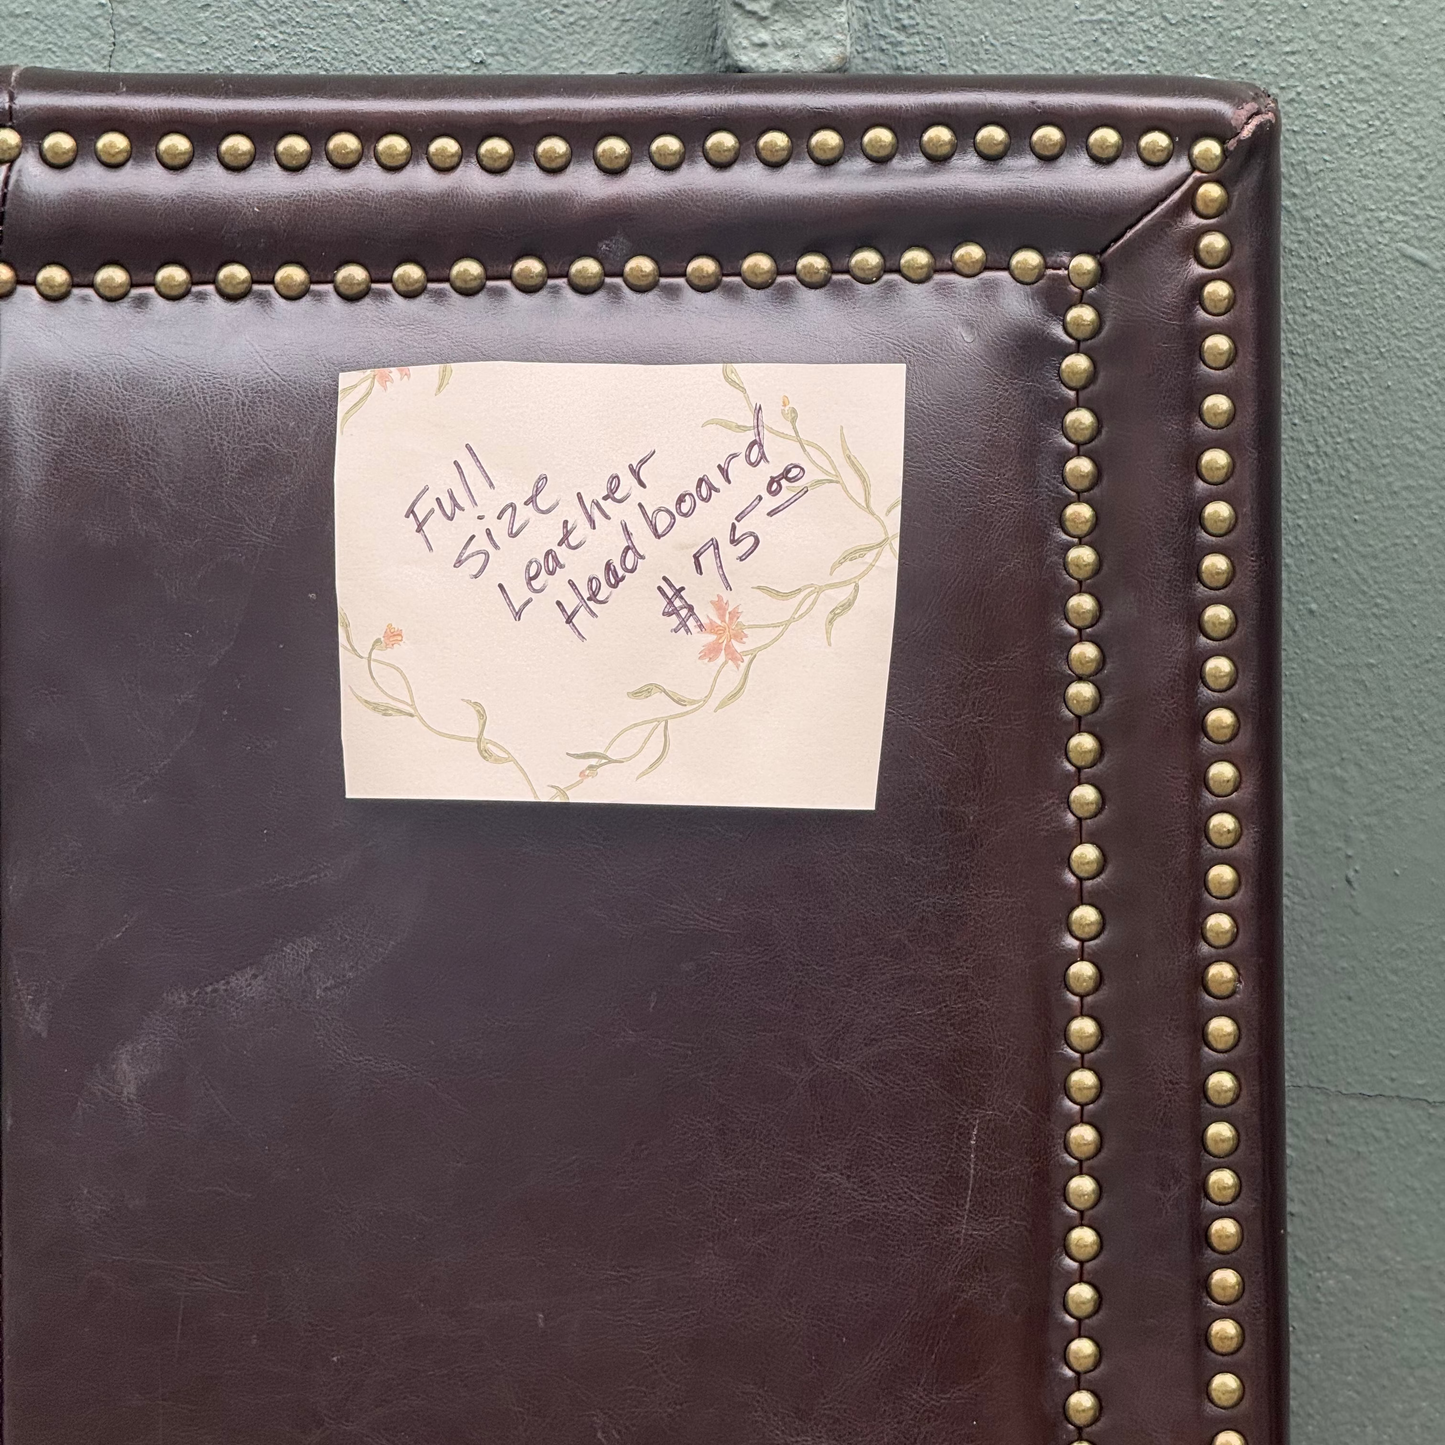 Full
Size
Leather
Headboard
$75.00